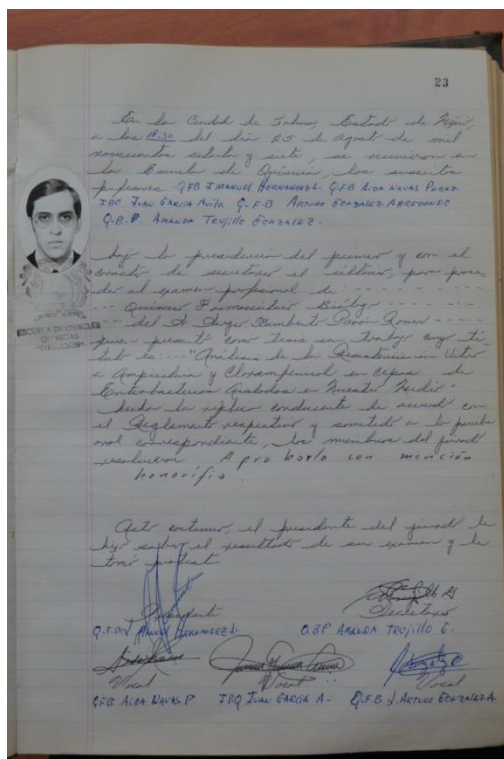 23
En la Ciudad de Toluca, Estado de
a las 18:30 del dia 25 de agosto de mil
novecientos setenta y siete, se reunieron en
la Escuela de Química, los suscritos
profesores: Q.F.B. MANUEL HERNANDEZ L. Q.F.B AIDA NAVAS PEREZ
IBQ JUAN GARCIA Avila. Q.F.B ARTURO GONZALEZ ARREDONDO
Q.B.P. AMANDA Trujillo GONZALEZ.
bajo la presidencia del primero y con el
caracter de secretario el último, para proce
der al examen profesional de
Químico Farmacéutico Biólogo
del S. Sergio Humberto Pavón Romero
quien presentó como tesis un trabajo cuyo tí
tulo es: "Análisis de la Resistencia in Vitro
a Ampicilina y Cloramfenicol en cepas de
Enterobacterias aisladas en Nuestro Medio"
hecha la réplica conducente de acuerdo con
el Reglamento respectivo y sometido a la prueba
oral correspondiente, los miembros del jurado
resolvieron Aprobarlo con mención
honorífica.
ESCUELA DE CIENCIAS
QUIMICAS
DIRECCION
Acto continuo, el presidente del jurado le
hizo saber el resultado de su examen y le
tomó protesta
Presidente
Secretario
MANUEL HERNANDEZ L.
Q B P AMANDA TRUJILLO G.
Vocal
Vocal
Vocal
QFB AIDA NAVAS P
IBQ JUAN GARCIA A.
Q.F.B J. ARTURO GONZALEZ A.